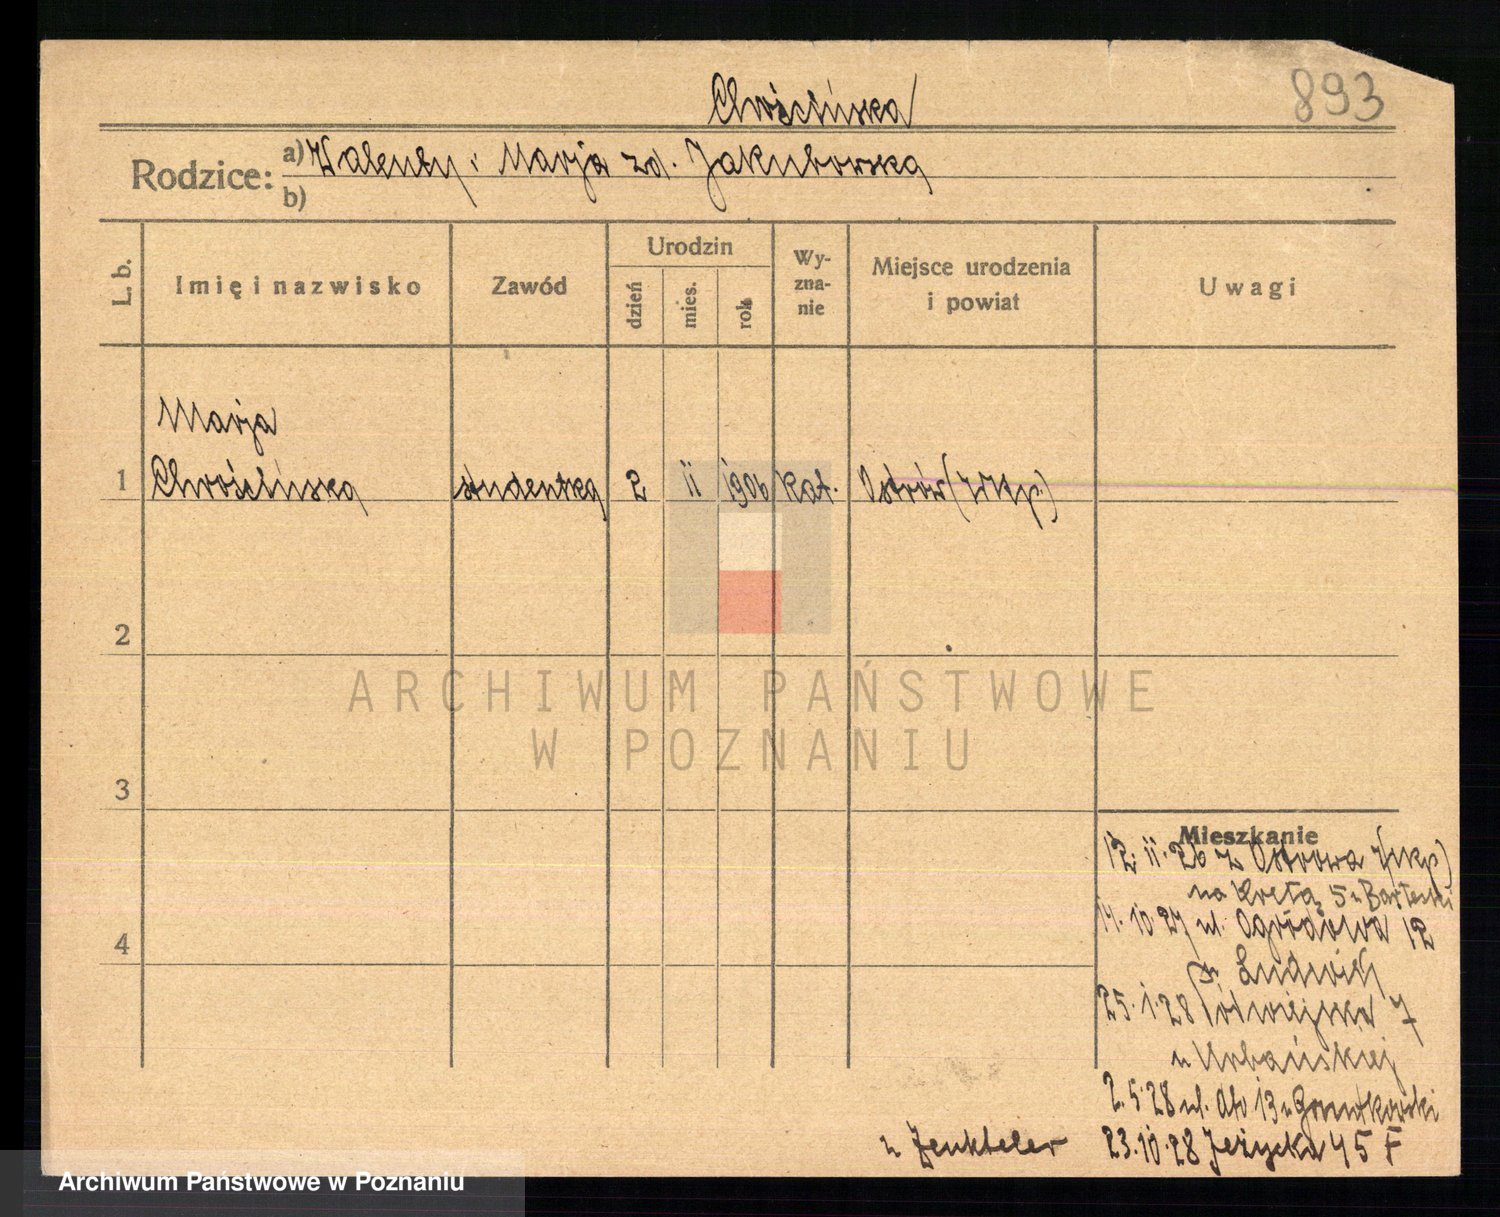 893
Chrościńska
Rodzice: a) Walenty i Marja zd. Jakubowska
b)
L. b. Imię i nazwisko Zawód Urodzin dzień mies. rok Wyznanie Miejsce urodzenia i powiat Uwagi
Marja
1 Chrościńska studentka 2 ii 1906 kat. Ostrów (Wlkp.)
2
ARCHIWUM PAŃSTWOWE
W POZNANIU
3
Mieszkanie
12. ii. 26 z Ostrowa Wlkp)
na Kretą 5 u Barłecki
14. 10. 27 ul. Ogrodowa 12
u Ludwich
25. 1. 28 Półwiejska 7
u Urbańskiej
4
2. 5. 28 ul. 13 u
23. 10. 28 Jeżycka 45 F
u Zenkteler
Archiwum Państwowe w Poznaniu